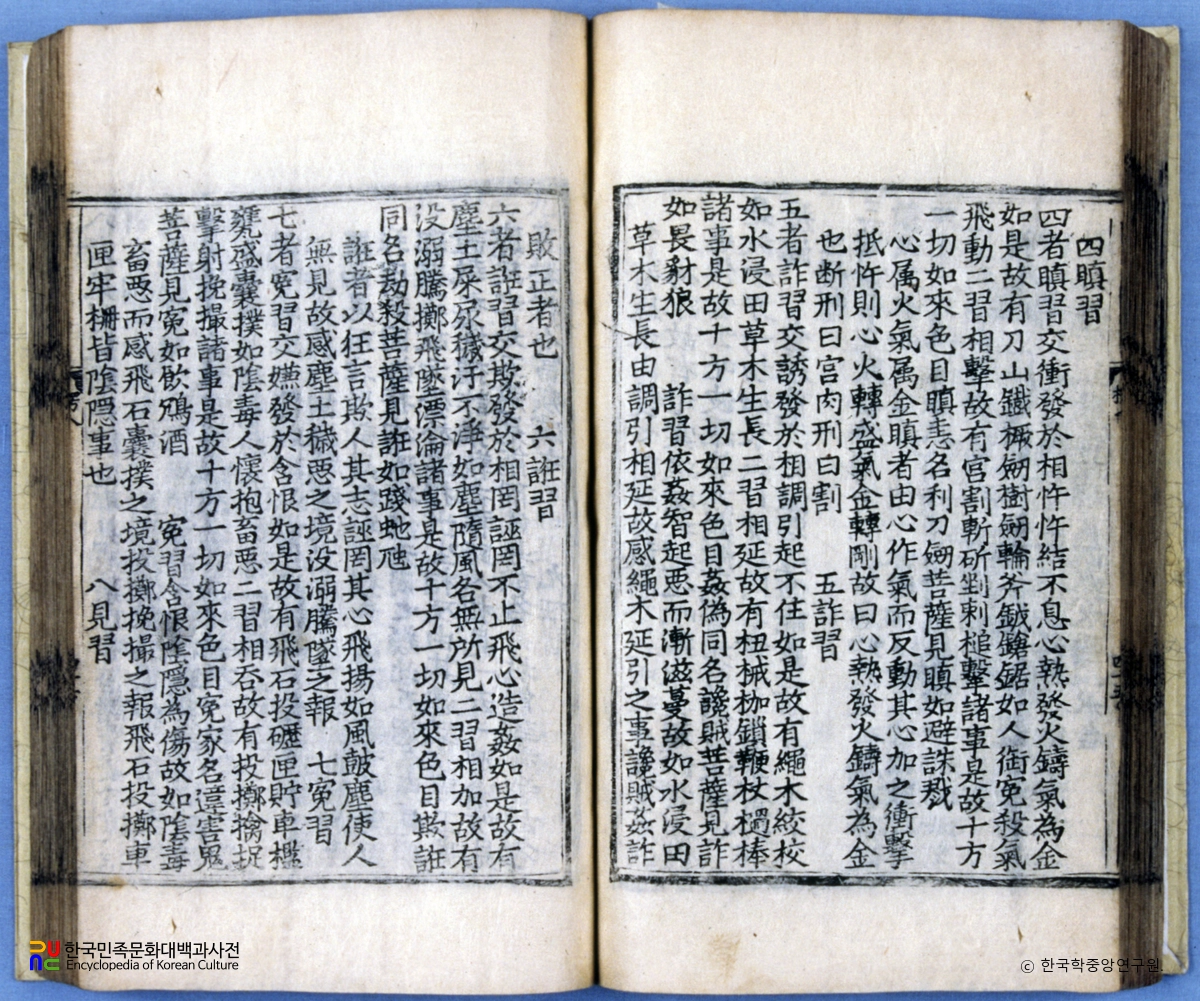 四瞋習
四者瞋習交衝發於相忤忤結不息心熱發火鑄氣為金
如是故有刀山鐵橛劒樹劒輪斧鉞鎗鋸如人銜寃殺氣
飛動二習相擊故有宮割斬斫剉刺槌擊諸事是故十方
一切如來色目瞋恚名利刀劒菩薩見瞋如避誅戮
心属火氣属金瞋者由心作氣而反動其心加之衝擊
抵忤則心火轉盛氣金轉剛故曰心熱發火鑄氣為金
也断刑曰宮肉刑曰割 五詐習
五者詐習交誘發於相調引起不住如是故有繩木絞校
如水浸田草木生長二習相延故有杻械枷鎖鞭杖檛棒
諸事是故十方一切如來色目姦偽同名讒賊菩薩見詐
如畏豺狼 詐習依姦智起悪而漸滋蔓故如水浸田
草木生長由調引相延故感繩木延引之事讒賊姦詐
敗正者也 六誑習
六者誑習交欺發於相罔誣罔不止飛心造姦如是故有
塵土屎尿穢汙不淨如塵隨風各無所見二習相加故有
没溺騰擲飛墜漂淪諸事是故十方一切如來色目欺誑
同名劫殺菩薩見誑如踐虵虺
誑者以狂言欺人其志誣罔其心飛揚如風皷塵使人
無見故感塵土穢惡之境没溺騰墜之報 七寃習
七者寃習交嫌發於含恨如是故有飛石投礰匣貯車檻
甕盛囊撲如陰毒人懷抱畜悪二習相吞故有投擲擒捉
擊射挽撮諸事是故十方一切如來色目寃家名違害鬼
菩薩見寃如飲鴆酒 寃習含恨陰隠為傷故如陰毒
畜悪而感飛石囊撲之境投擲挽撮之報飛石投擲車
匣牢柵皆陰隠事也 八見習
한국민족문화대백과사전
Encyclopedia of Korean Culture
© 한국학중앙연구원